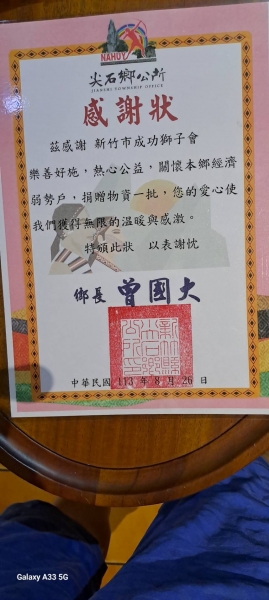 NAHUY
尖石鄉公所
JIANSHI TOWNSHIP OFFICE
感謝狀
茲感謝 新竹市成功獅子會
樂善好施，熱心公益，關懷本鄉經濟
弱勢戶，捐贈物資一批，您的愛心使
我們獲得無限的溫暖與感激。
特頒此狀 以表謝忱
鄉長 曾國大
新竹縣
尖石鄉
公所印
中華民國 113 年 8 月 26 日
Galaxy A33 5G